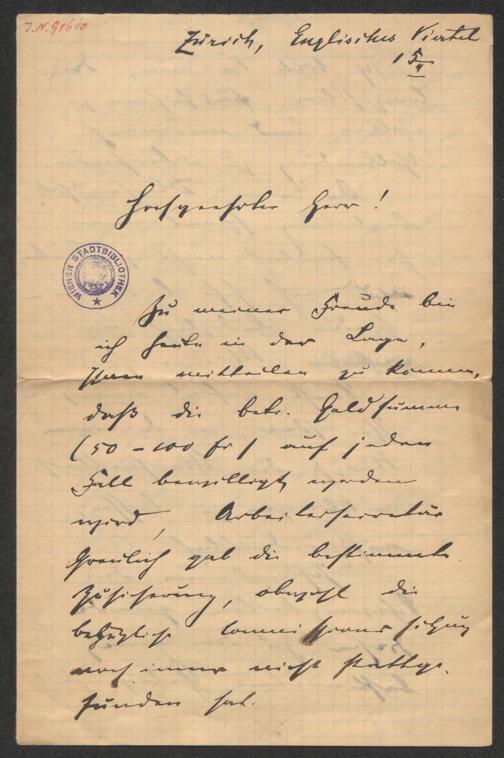 J.N. 91610
Zürich, Englisches Viertel
15
Hochgeehrter Herr!
WIENER STADTBIBLIOTHEK
Zu meiner Freude bin
ich heute in der Lage,
Ihnen mitteilen zu können,
daß die betr. Geldsumme
(50-100 fr) auf jeden
Fall bewilligt werden
wird, Arbeitersecretär
Greulich gab die bestimmte
Zusicherung, obwohl die
bezügliche Commissionssitzung
noch immer nicht stattge-
funden hat.